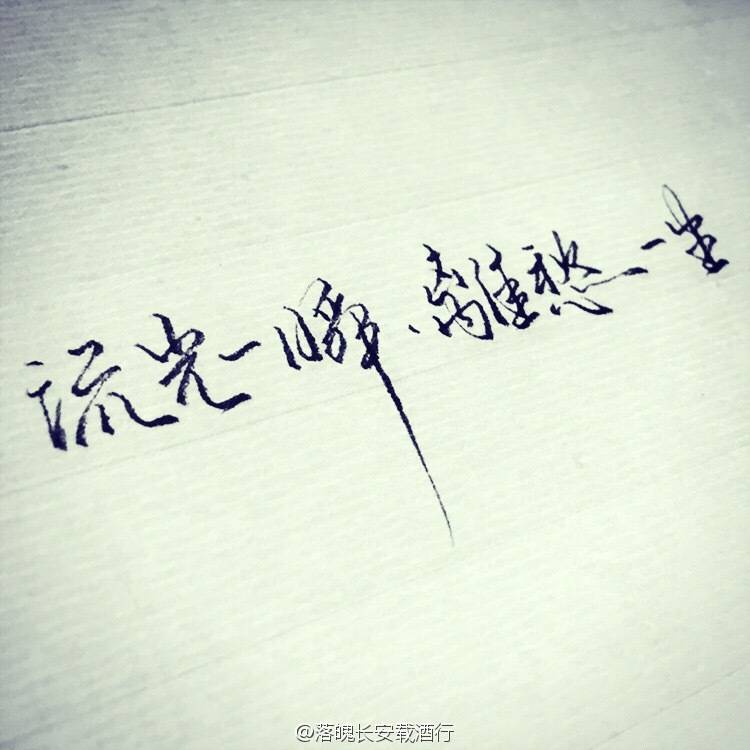 流光一瞬、離愁一生
@落魄长安载酒行